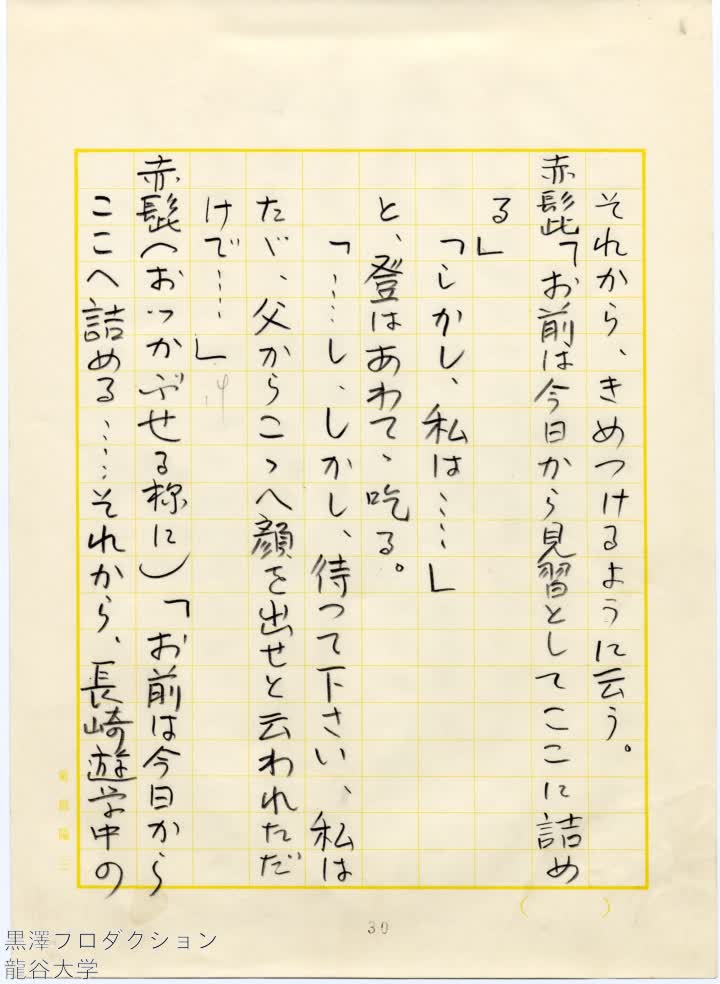 それから、きめつけるように云う。
赤髭「お前は今日から見習としてここに詰め
る」
「しかし、私は……」
と、登はあわてゝ吃る。
「……し、しかし、待つて下さい、私は
たゞ、父からこゝへ顔を出せと云われただ
けで……」
赤髭（おっかぶせる様に）「お前は今日から
ここへ詰める……それから、長崎遊学中の
30
黒澤プロダクション
龍谷大学